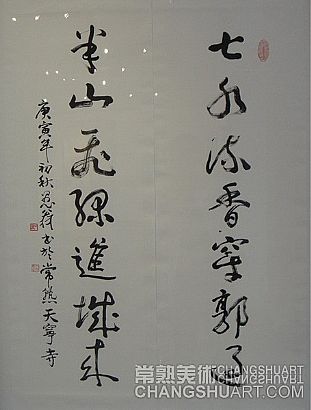 七水流香穿郭了
半山飛緑進城来
庚寅年初秋书於常熟天寧寺
常熟美術 CHANGSHUART
CHANGSHUART.COM